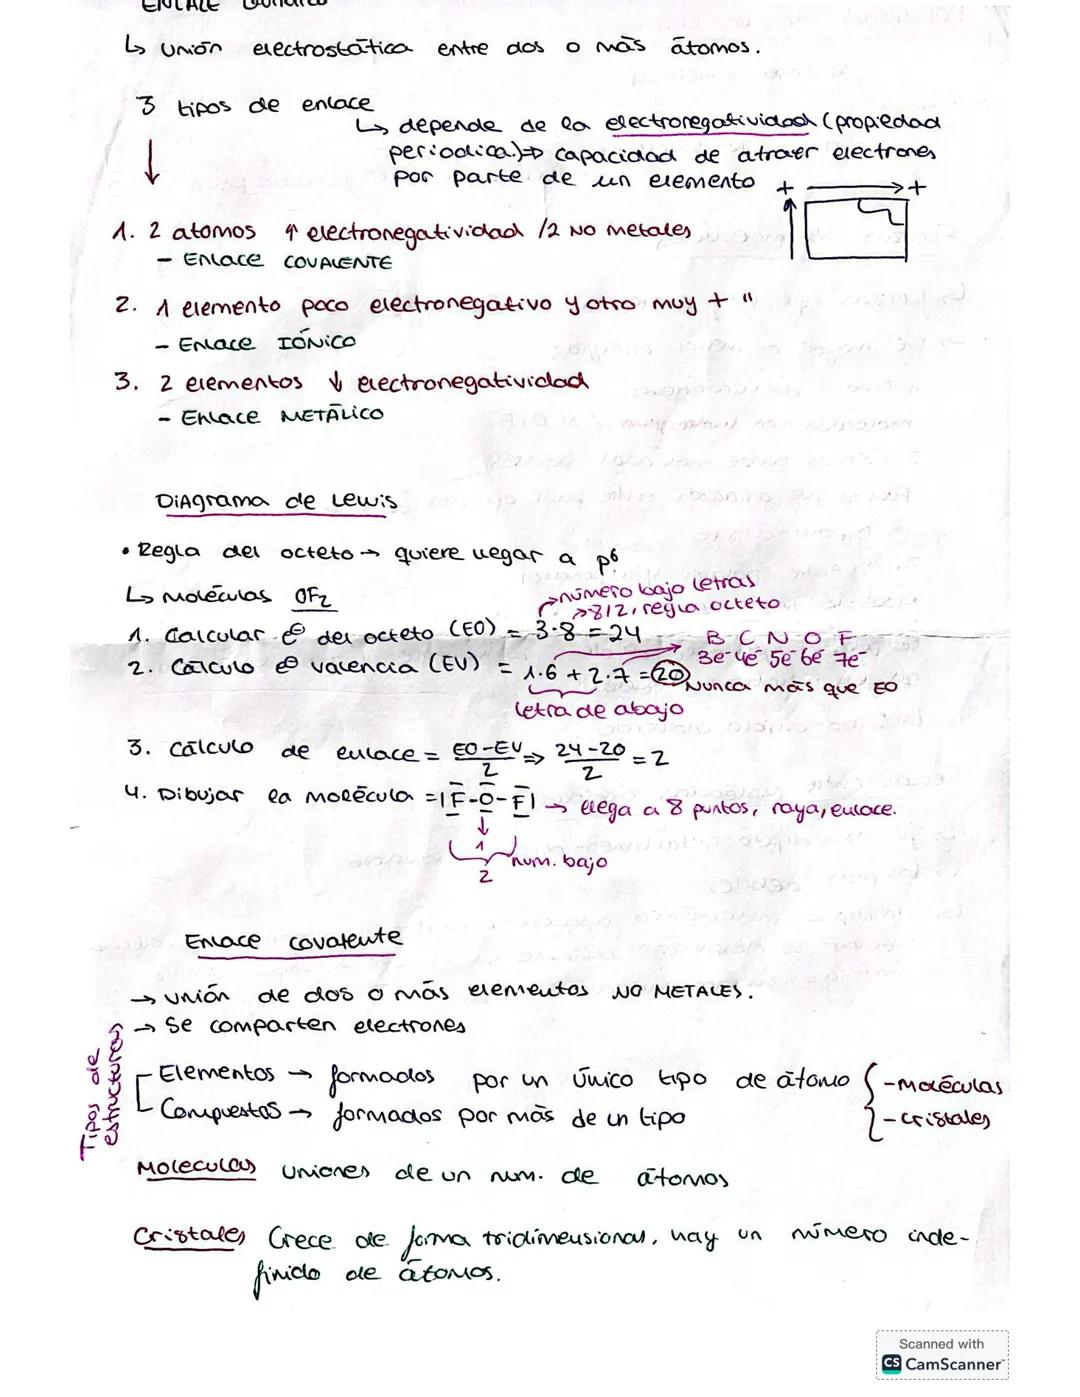 ENLACE QUÍMICO
↳ Unión electrostática entre dos o más átomos.
3 tipos de enlace
↳ depende de la electronegatividad (propiedad
periodica.)⇒ capacidad de atraer electrones
por parte de un elemento + → +
1. 2 atomos ↑ electronegatividad /2 NO metales
- Enlace COVALENTE
2. 1 elemento poco electronegativo y otro muy + "
- Enlace IÓNICO
3. 2 elementos ↓ electronegatividad
- Enlace METÁLICO
DiAgrama de Lewis
• Regla del octeto → quiere llegar a p⁶
↳ Moléculas OF₂
→número bajo letras
→8/2, regla octeto
1. Calcular e⁻ del octeto (EO) = 3·8 = 24
B C N O F
3e⁻ 4e⁻ 5e⁻ 6e⁻ 7e⁻
2. Cálculo e⁻ valencia (EV) = 1·6 + 2·7 = 20 Nunca más que EO
letra de abajo
3. Cálculo de enlace = EO-EV/2 ⇒ 24-20/2 = 2
4. Dibujar la molécula = |F-O-F| → llega a 8 puntos, raya, enlace.
1
num. bajo
2
Enlace covalente
→ unión de dos o más elementos NO METALES.
→ Se comparten electrones
Tipos de estructuras
Elementos → formados por un único tipo de átomo
Compuestos → formados por más de un tipo
- Moléculas
- cristales
Moleculas uniones de un num. de átomos
Cristales Crece de forma tridimensional, hay un número inde-
finido de átomos.
Scanned with
CS CamScanner